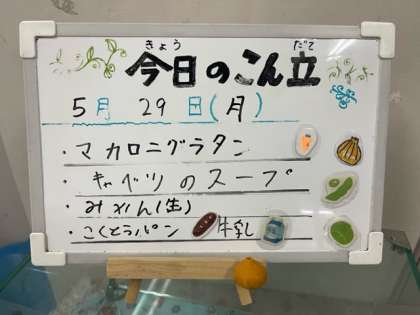 きょう だて
今日のこん立
5月 29日(月)
・マカロニグラタン
・キャベツのスープ
・みかん(生)
・こくとうパン 牛乳